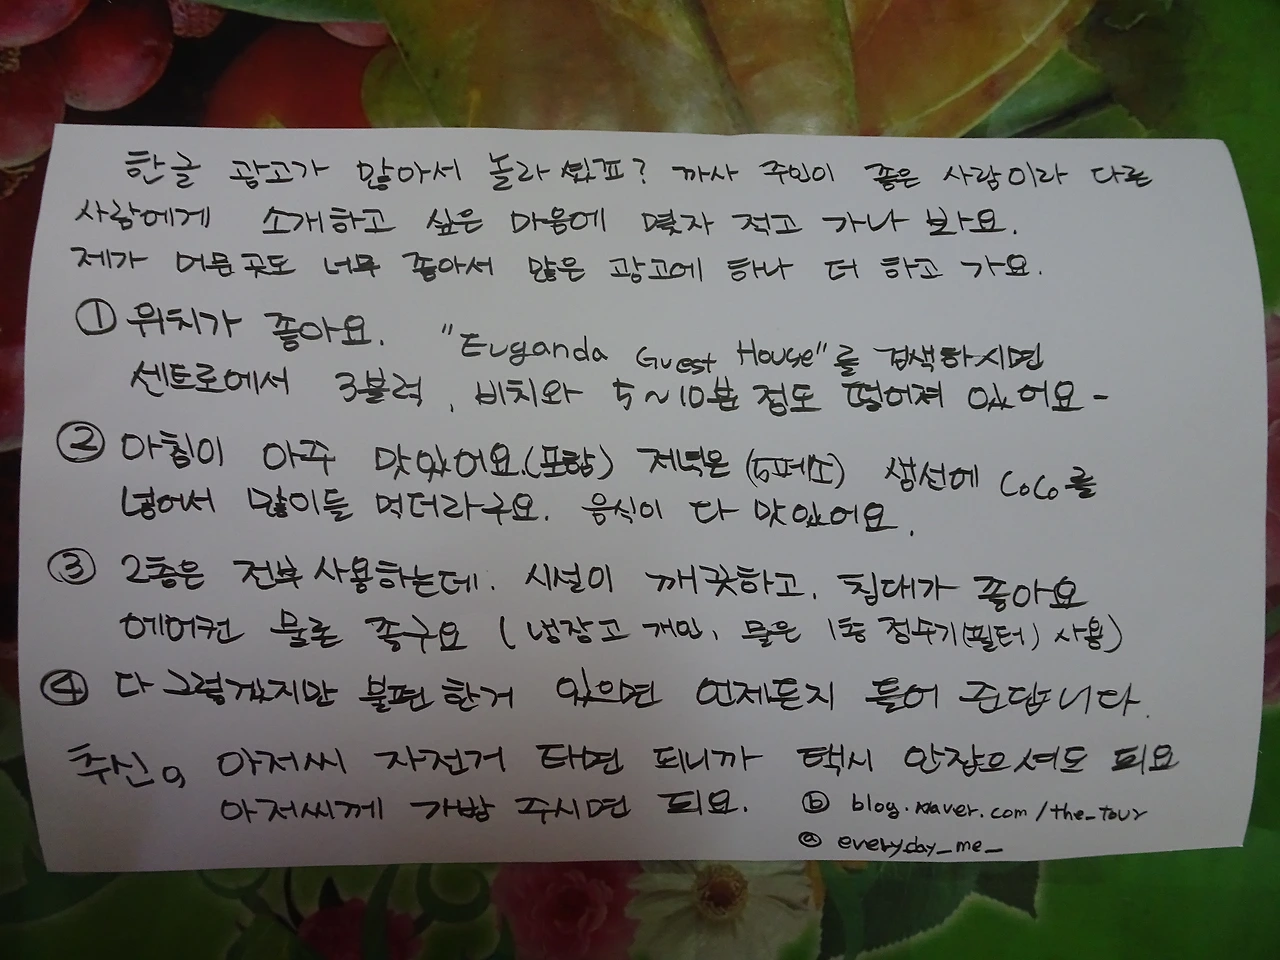 한글 광고가 많아서 놀라셨죠? 까사 주인이 좋은 사람이라 다른
사람에게 소개하고 싶은 마음에 몇자 적고 가나 봐요.
제가 머문곳도 너무 좋아서 많은 광고에 하나 더 하고 가요.
① 위치가 좋아요. "Euganda Guest House"를 검색하시면
센트로에서 3블럭, 비치와 5~10분 정도 떨어져 있어요-
② 아침이 아주 맛있어요.(포함) 저녁은 (5페소) 생선에 CoCo를
넣어서 많이들 먹더라구요. 음식이 다 맛있어요.
③ 2층은 전부 사용하는데. 시설이 깨끗하고, 침대가 좋아요
에어컨 물론 좋구요 (냉장고 개인, 물은 1층 정수기(필터) 사용)
④ 다 그렇겠지만 불편한거 있으면 언제든지 들어 준답니다.
추신. 아저씨 자전거 타면 되니까 택시 안잡으셔도 되요
아저씨께 가방 주시면 되요. ⓑ blog.naver.com/the_tour
@ everyday_me_